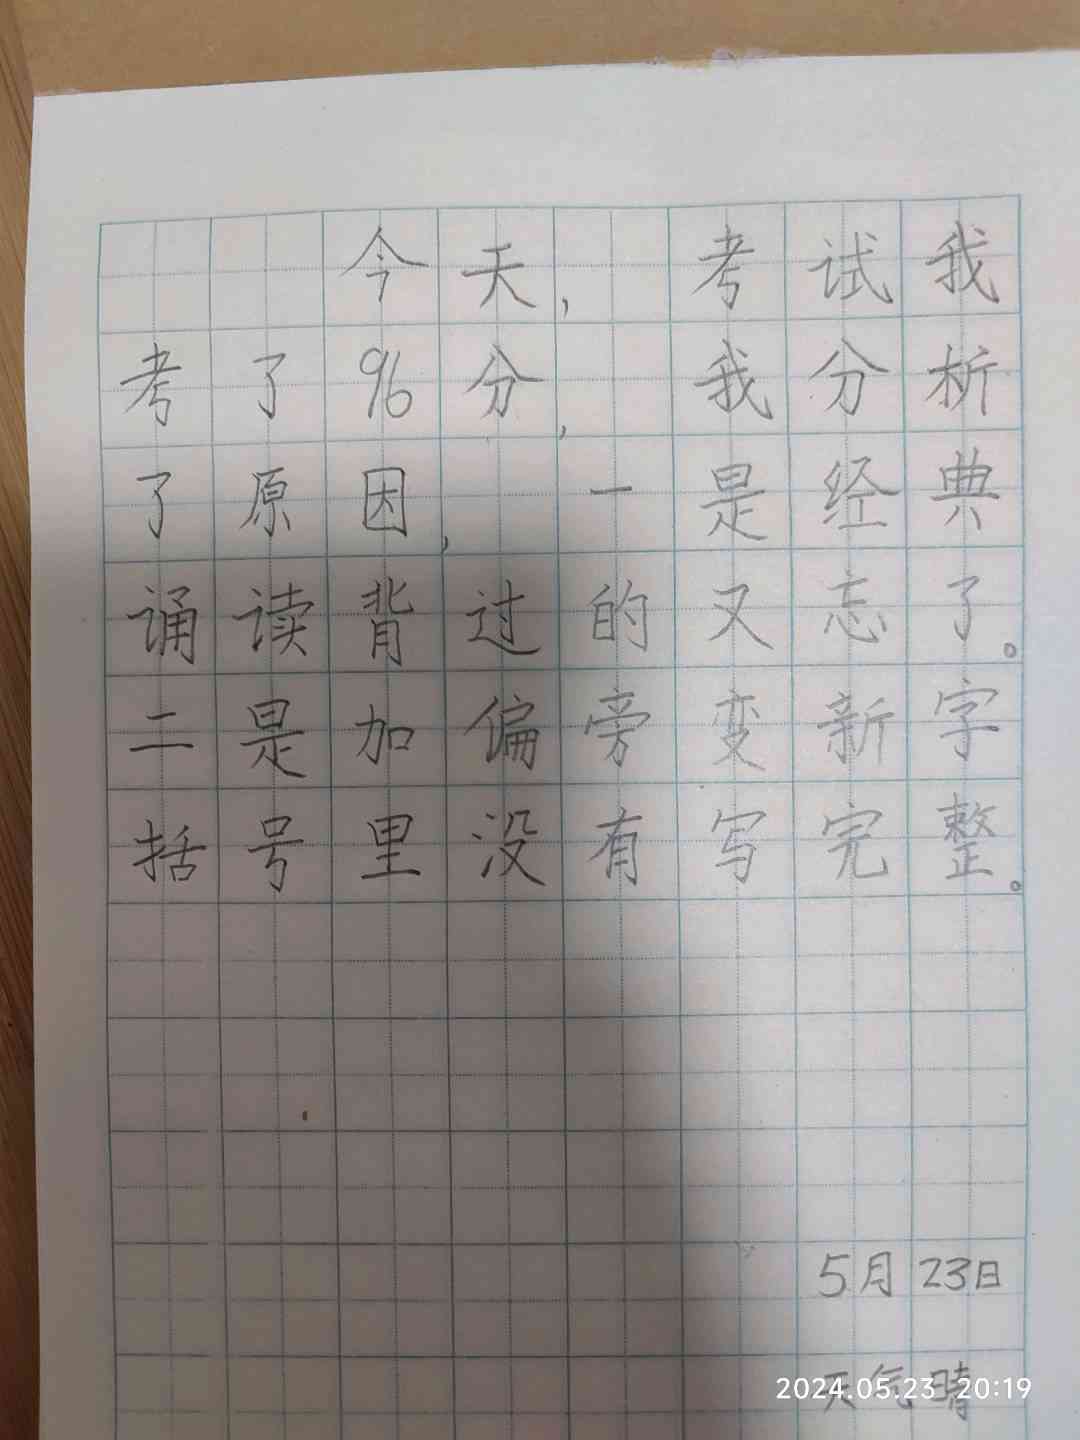 今天，考试我
考了96分，我分析
了原因，一是经典
诵读背过的又忘了。
二是加偏旁变新字
括号里没有写完整。
5月23日
天气晴
2024.05.23 20:19